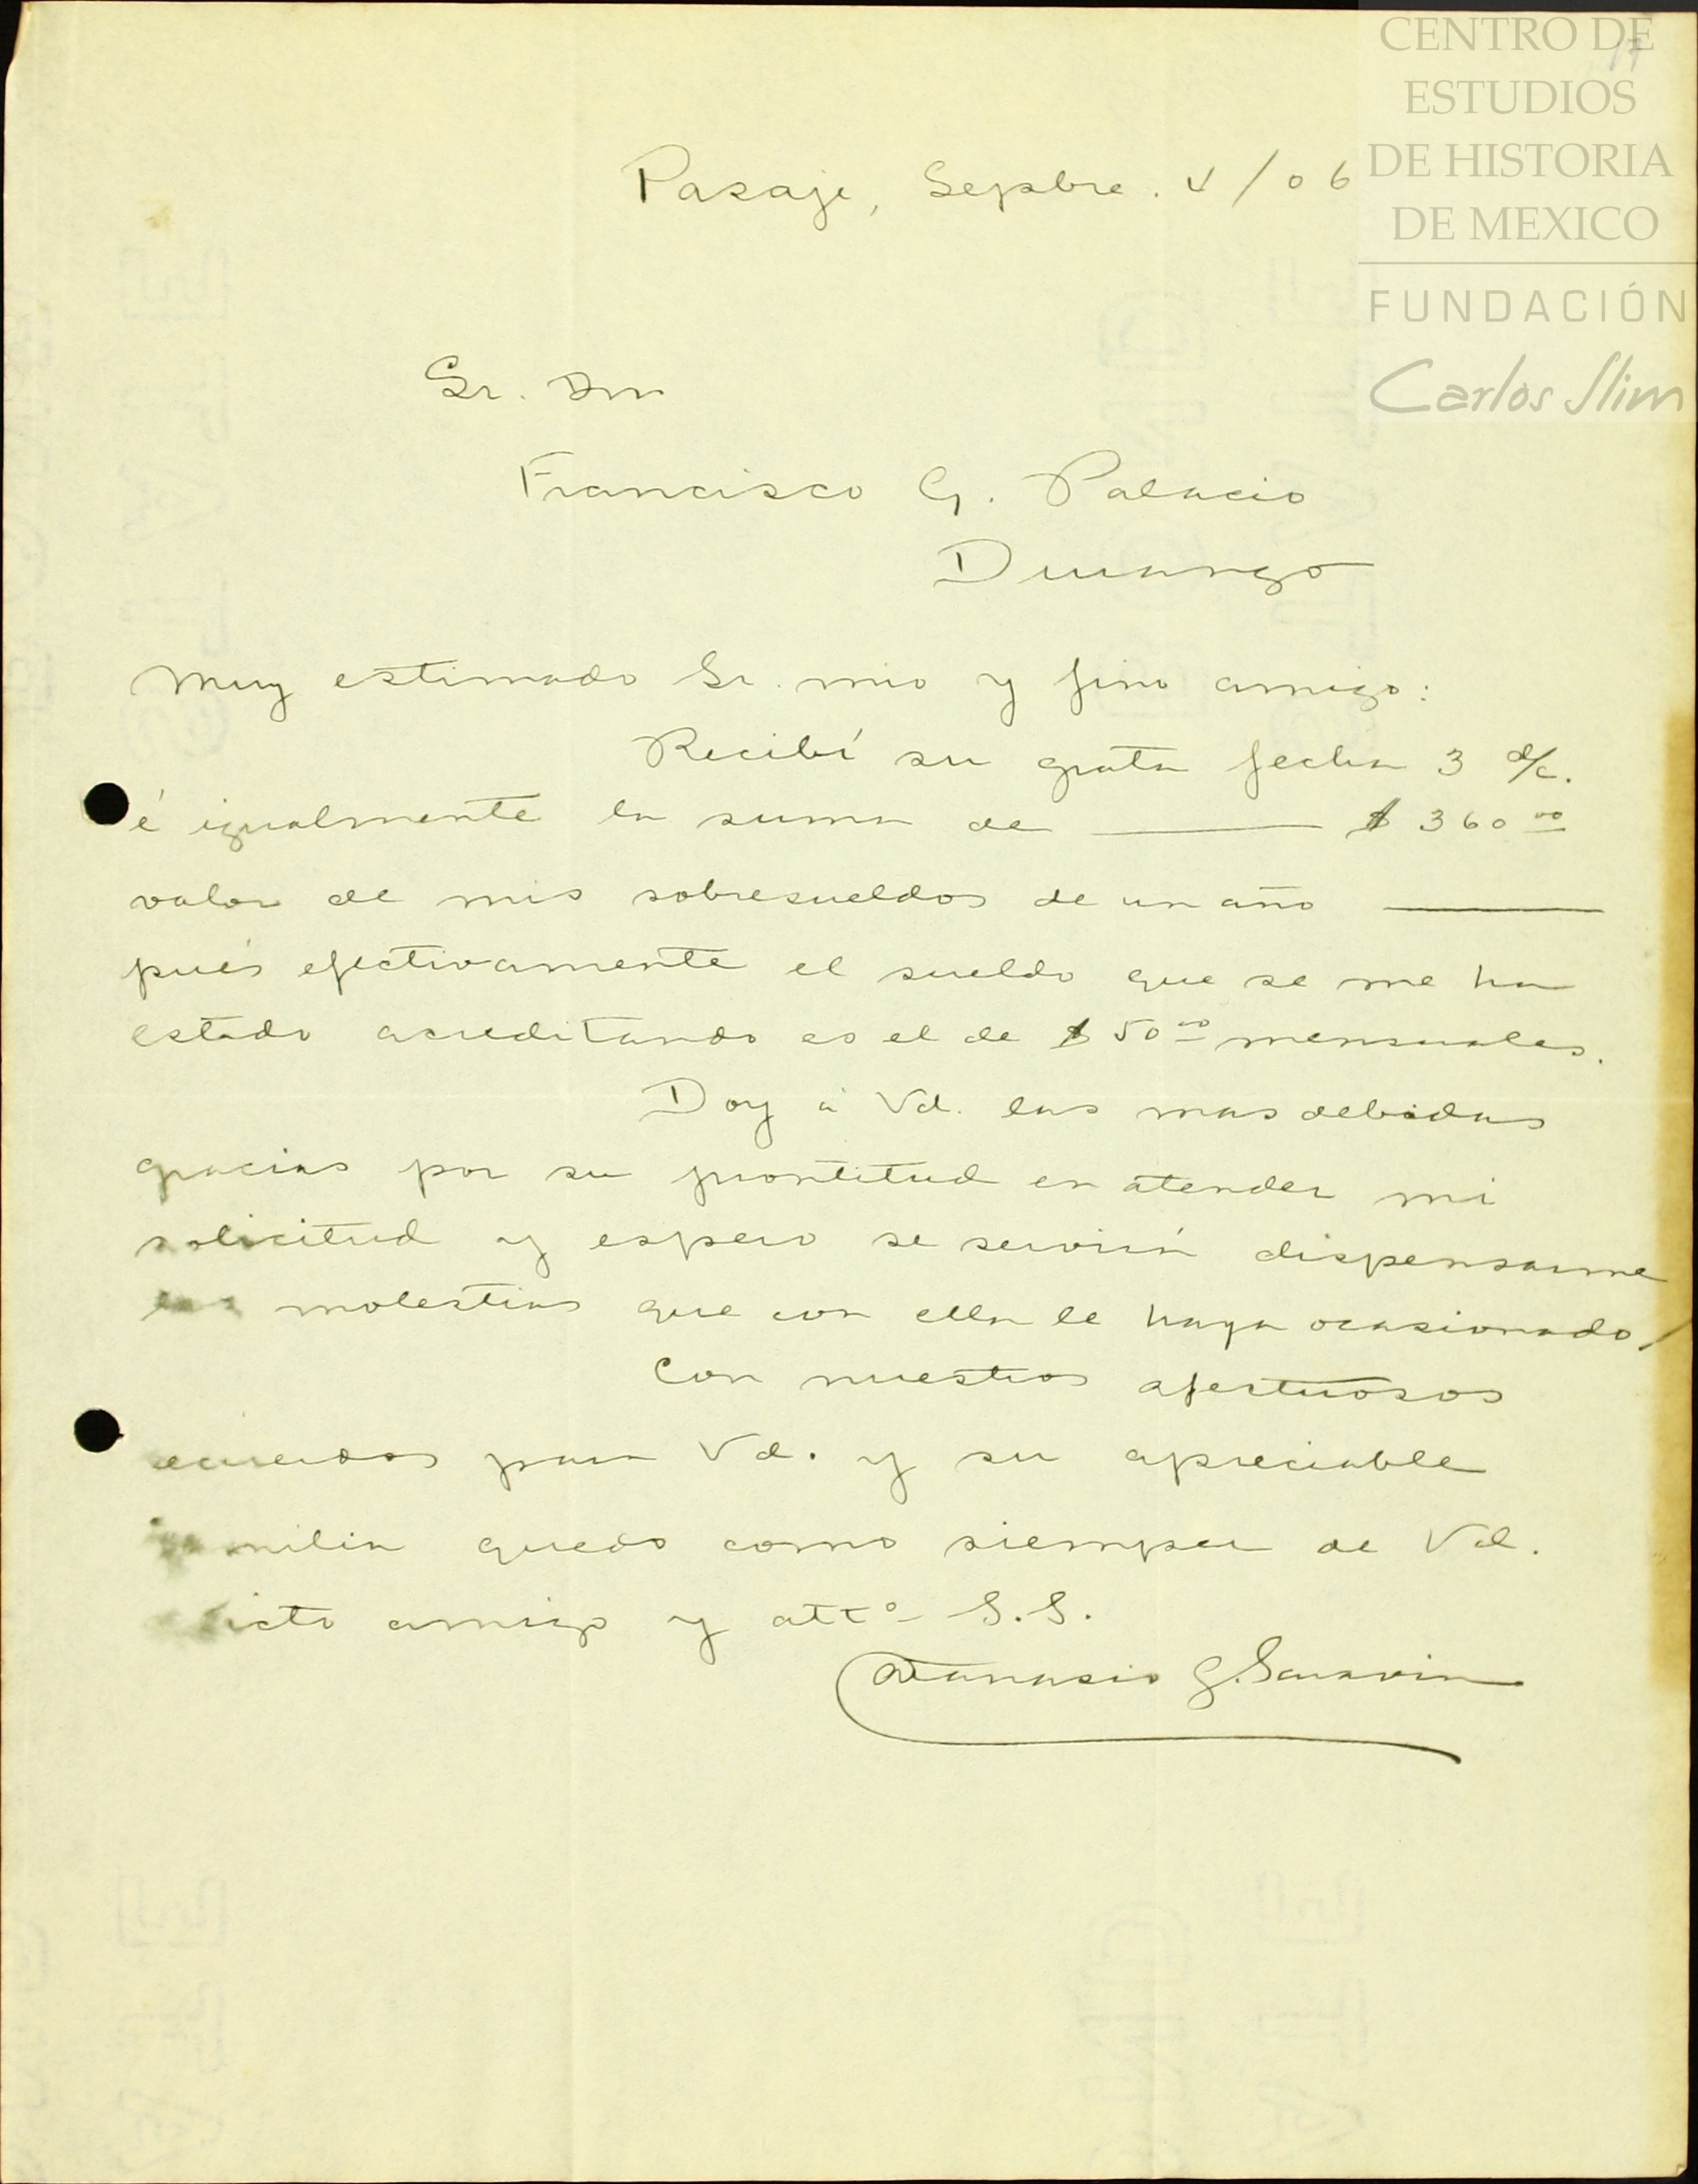 CENTRO DE
ESTUDIOS
DE HISTORIA
DE MEXICO
FUNDACIÓN
Carlos Slim
Pasaje, Sepbre. 4/06
Sr. Dn
Francisco G. Palacio
Durango
Muy estimado Sr. mio y fino amigo:
Recibí su grata fecha 3 d/c.
é igualmente la suma de ——— $ 360 00
valor de mis sobresueldos de un año ———
pués efectivamente el sueldo que se me ha
estado acreditando es el de $ 50 00 mensuales.
Doy á Vd. las mas debidas
gracias por su prontitud en atender mi
solicitud y espero se servirá dispensarme
las molestias que con ella le haya ocasionado.
Con nuestros afectuosos
recuerdos para Vd. y su apreciable
familia quedo como siempre de Vd.
adicto amigo y atto S.S.
Atanasio G. Saravia